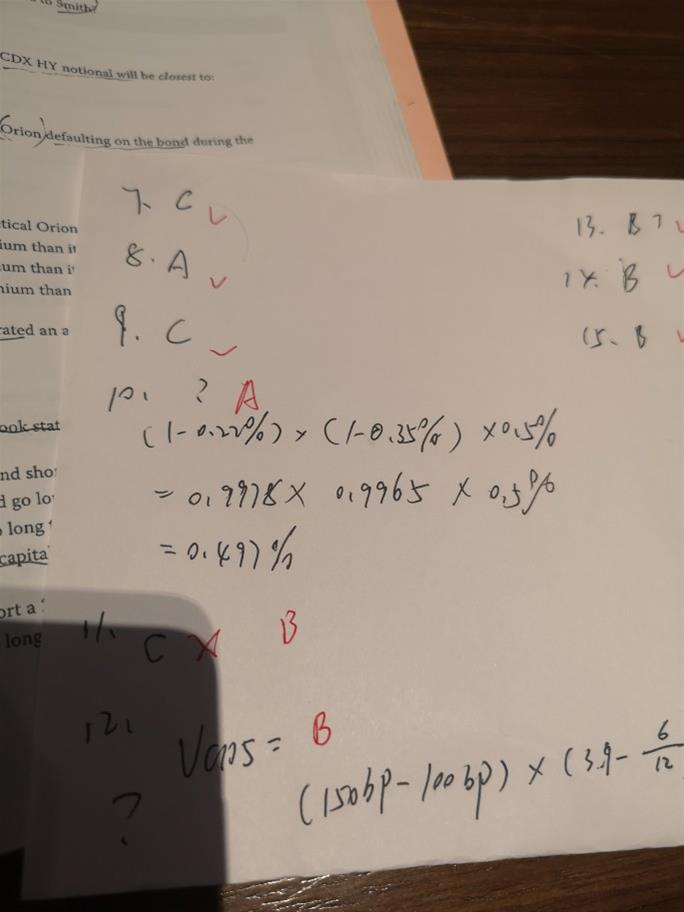 to Smith?
CDX HY notional will be closest to:
Orion defaulting on the bond during the
tical Orion
ium than it
um than i
nium than
rated an a
ook stat
nd sho
d go lo
long
capita
ort a
long
7. C ✓
8. A ✓
9. C ✓
10. ? A
(1-0.22%) × (1-0.35%) × 0.5%
= 0.9978 × 0.9965 × 0.5%
= 0.497%
11. C X B
12. VCDS = B
? (150bp - 100bp) × (3.9 - 6/12
13. B ? ✓
14. B ✓
15. B ✓